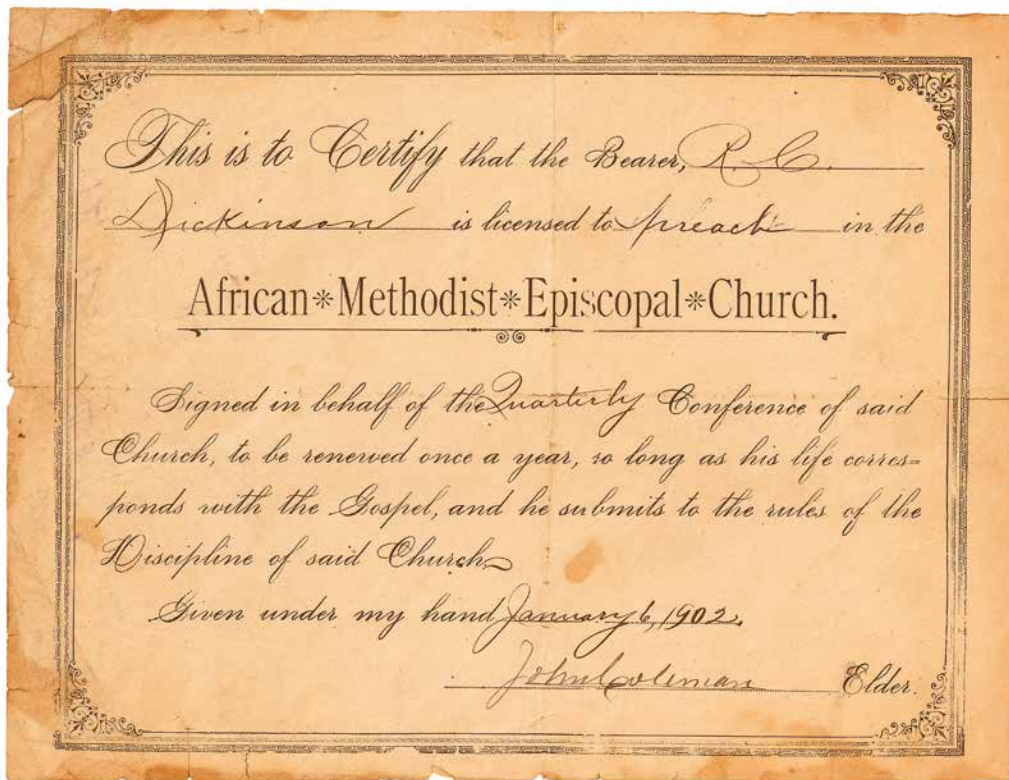 This is to Certify that the Bearer, R. C.
Dickinson is licensed to preach in the
African*Methodist*Episcopal*Church.
Signed in behalf of the Quarterly Conference of said
Church, to be renewed once a year, so long as his life corres=
ponds with the Gospel, and he submits to the rules of the
Discipline of said Church.
Given under my hand January 6, 1902.
John Coleman Elder.